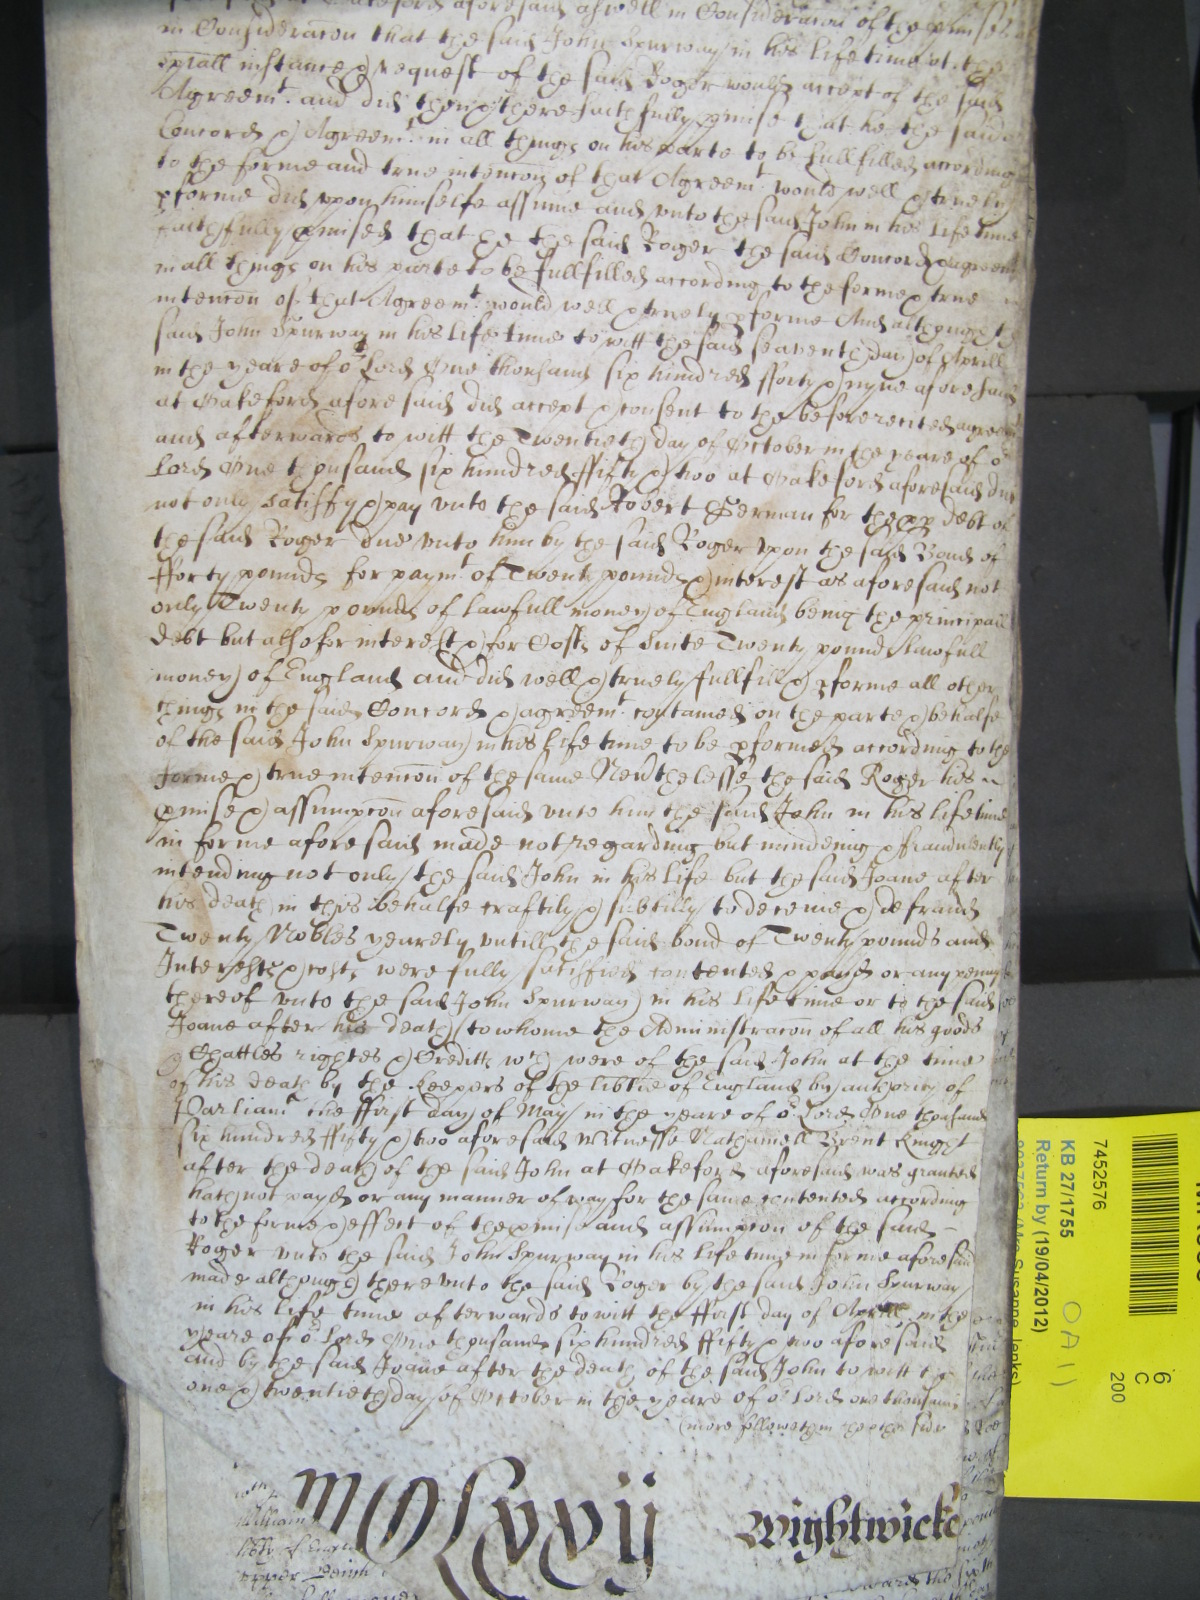 aforesaid aswell in Consideracon of the pmisses
in Consideracon that the said John Spurway in his life time at the
spiall instance & request of the said Roger would accept of the said
Agreemt. and did then & there faithfully pmise that he the said
Concord & Agreemt. in all things on his parte to be fullfilled according
to the forme and true intencon of that Agreemt. would well & truely
pforme did upon himselfe assume and unto the said John in his life time
faithfully pmised that he the said Roger the said Concord & agreemt
in all things on his parte to be fullfilled according to the forme & true
intencon of that Agreemt. would well & truely pforme And although the
said John Spurway in his life time to witt the said seaventh day of Aprill
in the yeare of or Lord One thousand six hundred fforty & nyne aforesaid
at Oakeford aforesaid did accept & consent to the before recited agreemt
and afterwards to witt the Twentieth day of October in the yeare of or
Lord One thousand six hundred ffifty & two at Oakeford aforesaid did
not only satisfy & pay unto the said Robert German for the pp debt of
the said Roger due unto him by the said Roger upon the said Bond of
fforty pounds for paymt of Twenty pounds & interest as aforesaid not
only Twenty pounds of lawfull money of England being the principall
debt but alsoe for interest & for Costs of Suite Twenty pounds lawfull
money of England and did well & truely fullfill & pforme all other
things in the said Concord & agreemt. contained on the parte & behalfe
of the said John Spurway in his life time to be pformed according to the
forme & true intencon of the same Neverthelesse the said Roger his
pmise & assumpcon aforesaid unto him the said John in his life time
in forme aforesaid made not regarding but mindeing & fraudulently
intending not only the said John in his life but the said Joane after
his death in this behalfe craftily & subtilly to deceive & defraud
Twenty Nobles yearely untill the said bond of Twenty pounds and
Interests & costs were fully satisfied contented & payd or any penny
thereof unto the said John Spurway in his life time or to the said
Joane after his death to whome the Administracon of all his goods
Chattles rightes & Creditts wch were of the said John at the time
of his death by the Keepers of the libtie of England by authority of
Parliamt the ffirst day of May in the yeare of or Lord One thousand
six hundred ffifty & two aforesaid Witnesse Nathaniell Brent Knight
after the death of the said John at Oakeford aforesaid was granted
hath not payd or any manner of way for the same contented according
to the forme & effect of the pmise and assumpcon of the said
Roger unto the said John Spurway in his life time in forme aforesaid
made although thereunto the said Roger by the said John Spurway
in his life time afterwards to witt the ffirst day of Aprill in the
yeare of or Lord One thousand six hundred ffifty & two aforesaid
and by the said Joane after the death of the said John to witt the
one & twentieth day of October in the yeare of or Lord one thousand
(more followeth on the other side
Wightwicke
William
7452576
KB 27/1755
Return by (19/04/2012)
6
C
200